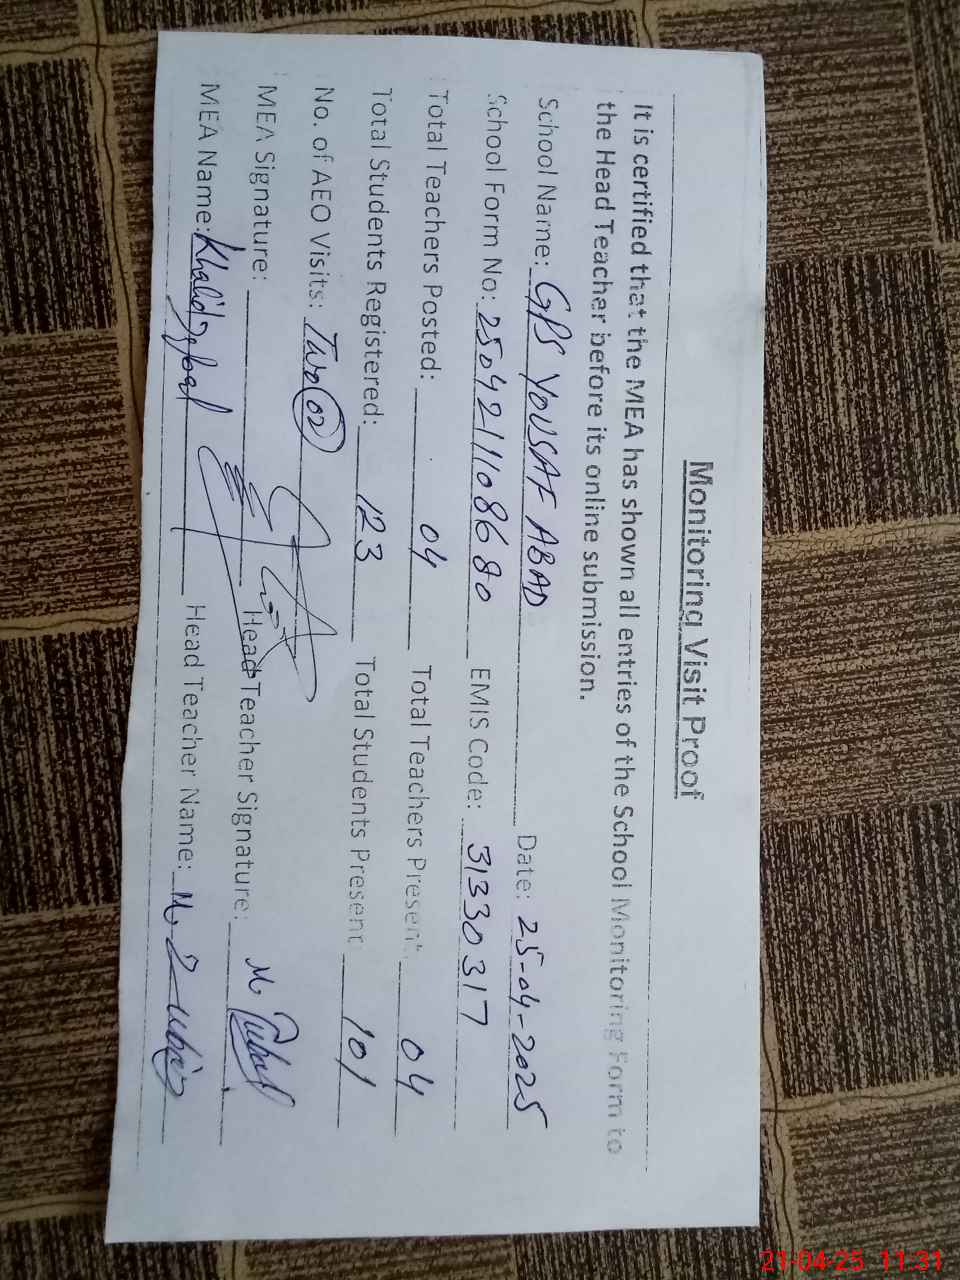 Monitoring Visit Proof
It is certified that the MEA has shown all entries of the School Monitoring Form to
the Head Teacher before its online submission.
School Name: GPS YOUSAF ABAD Date: 25-04-2025
School Form No: 250421108680 EMIS Code: 31330317
Total Teachers Posted: 04 Total Teachers Present 04
Total Students Registered: 123 Total Students Present 101
No. of AEO Visits: Two 02
MEA Signature: Head Teacher Signature: M
MEA Name: Khalid Iqbal Head Teacher Name: M.
21-04-25 11:31